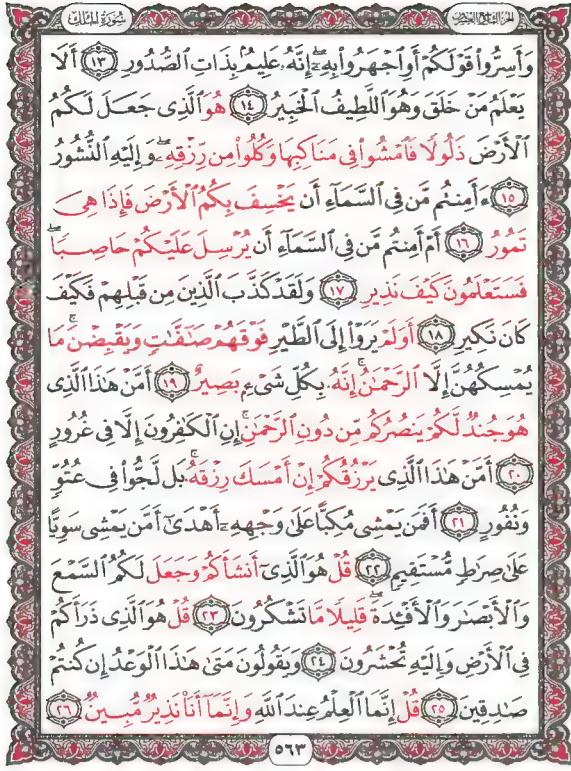 سُورَةُ المُلْكِ
الجزء التاسع والعشرون
وَأَسِرُّوا۟ قَوْلَكُمْ أَوِ ٱجْهَرُوا۟ بِهِۦٓ ۖ إِنَّهُۥ عَلِيمٌۢ بِذَاتِ ٱلصُّدُورِ ١٣ أَلَا
يَعْلَمُ مَنْ خَلَقَ وَهُوَ ٱللَّطِيفُ ٱلْخَبِيرُ ١٤ هُوَ ٱلَّذِى جَعَلَ لَكُمُ
ٱلْأَرْضَ ذَلُولًا فَٱمْشُوا۟ فِى مَنَاكِبِهَا وَكُلُوا۟ مِن رِّزْقِهِۦ ۖ وَإِلَيْهِ ٱلنُّشُورُ
١٥ ءَأَمِنتُم مَّن فِى ٱلسَّمَآءِ أَن يَخْسِفَ بِكُمُ ٱلْأَرْضَ فَإِذَا هِىَ
تَمُورُ ١٦ أَمْ أَمِنتُم مَّن فِى ٱلسَّمَآءِ أَن يُرْسِلَ عَلَيْكُمْ حَاصِبًا ۖ
فَسَتَعْلَمُونَ كَيْفَ نَذِيرِ ١٧ وَلَقَدْ كَذَّبَ ٱلَّذِينَ مِن قَبْلِهِمْ فَكَيْفَ
كَانَ نَكِيرِ ١٨ أَوَلَمْ يَرَوْا۟ إِلَى ٱلطَّيْرِ فَوْقَهُمْ صَـٰٓفَّـٰتٍ وَيَقْبِضْنَ ۚ مَا
يُمْسِكُهُنَّ إِلَّا ٱلرَّحْمَـٰنُ ۚ إِنَّهُۥ بِكُلِّ شَىْءٍۭ بَصِيرٌ ١٩ أَمَّنْ هَـٰذَا ٱلَّذِى
هُوَ جُندٌ لَّكُمْ يَنصُرُكُم مِّن دُونِ ٱلرَّحْمَـٰنِ ۚ إِنِ ٱلْكَـٰفِرُونَ إِلَّا فِى غُرُورٍ
٢٠ أَمَّنْ هَـٰذَا ٱلَّذِى يَرْزُقُكُمْ إِنْ أَمْسَكَ رِزْقَهُۥ ۚ بَل لَّجُّوا۟ فِى عُتُوٍّ
وَنُفُورٍ ٢١ أَفَمَن يَمْشِى مُكِبًّا عَلَىٰ وَجْهِهِۦٓ أَهْدَىٰٓ أَمَّن يَمْشِى سَوِيًّا
عَلَىٰ صِرَٰطٍ مُّسْتَقِيمٍ ٢٢ قُلْ هُوَ ٱلَّذِىٓ أَنشَأَكُمْ وَجَعَلَ لَكُمُ ٱلسَّمْعَ
وَٱلْأَبْصَـٰرَ وَٱلْأَفْـِٔدَةَ ۖ قَلِيلًا مَّا تَشْكُرُونَ ٢٣ قُلْ هُوَ ٱلَّذِى ذَرَأَكُمْ
فِى ٱلْأَرْضِ وَإِلَيْهِ تُحْشَرُونَ ٢٤ وَيَقُولُونَ مَتَىٰ هَـٰذَا ٱلْوَعْدُ إِن كُنتُمْ
صَـٰدِقِينَ ٢٥ قُلْ إِنَّمَا ٱلْعِلْمُ عِندَ ٱللَّهِ وَإِنَّمَآ أَنَا۠ نَذِيرٌ مُّبِينٌ ٢٦
٥٦٣